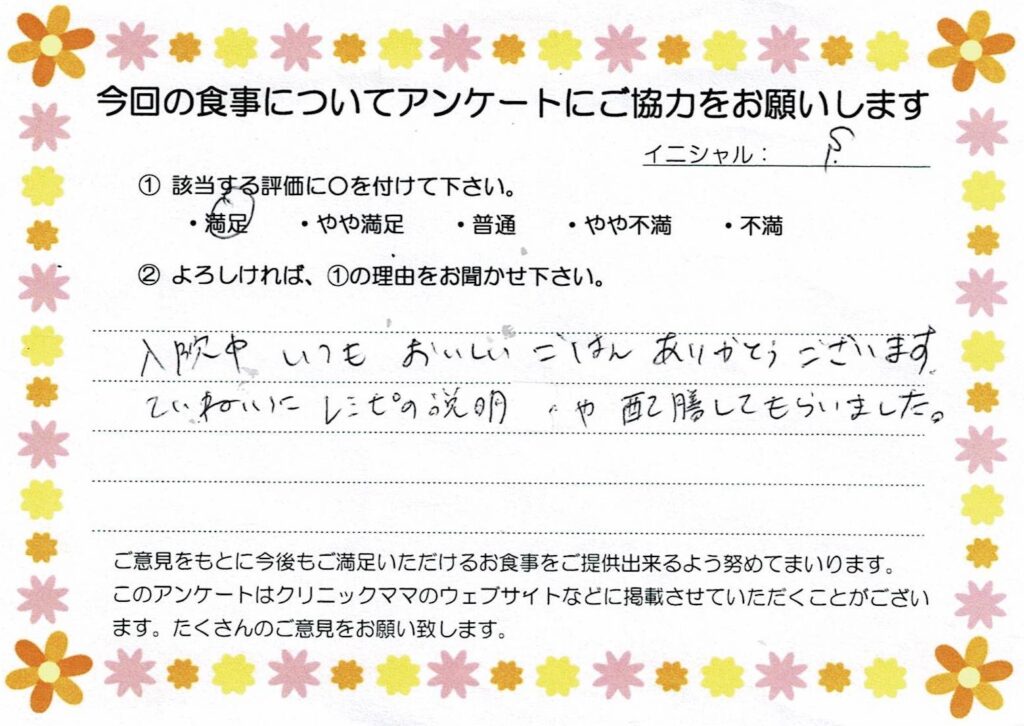 今回の食事についてアンケートにご協力をお願いします
イニシャル： S.
① 該当する評価に〇を付けて下さい。
・満足 ・やや満足 ・普通 ・やや不満 ・不満
② よろしければ、①の理由をお聞かせ下さい。
入院中 いつも おいしい ごはん ありがとう ございます。
ていねいに レシピの説明 や 配膳してもらいました。
ご意見をもとに今後もご満足いただけるお食事をご提供出来るよう努めてまいります。
このアンケートはクリニックママのウェブサイトなどに掲載させていただくことがござい
ます。たくさんのご意見をお願い致します。